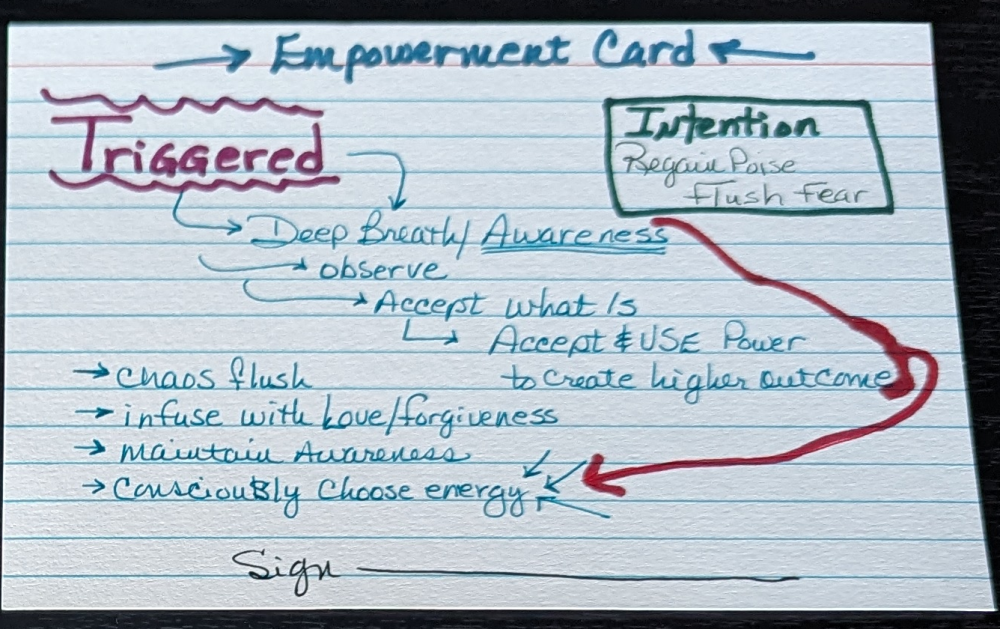 Empowerment Card
Triggered
Intention
Regain Poise
Flush Fear
Deep Breath/Awareness
observe
Accept what Is
Accept & USE Power
to create higher outcome
chaos flush
infuse with Love/forgiveness
maintain Awareness
Consciously Choose energy
Sign